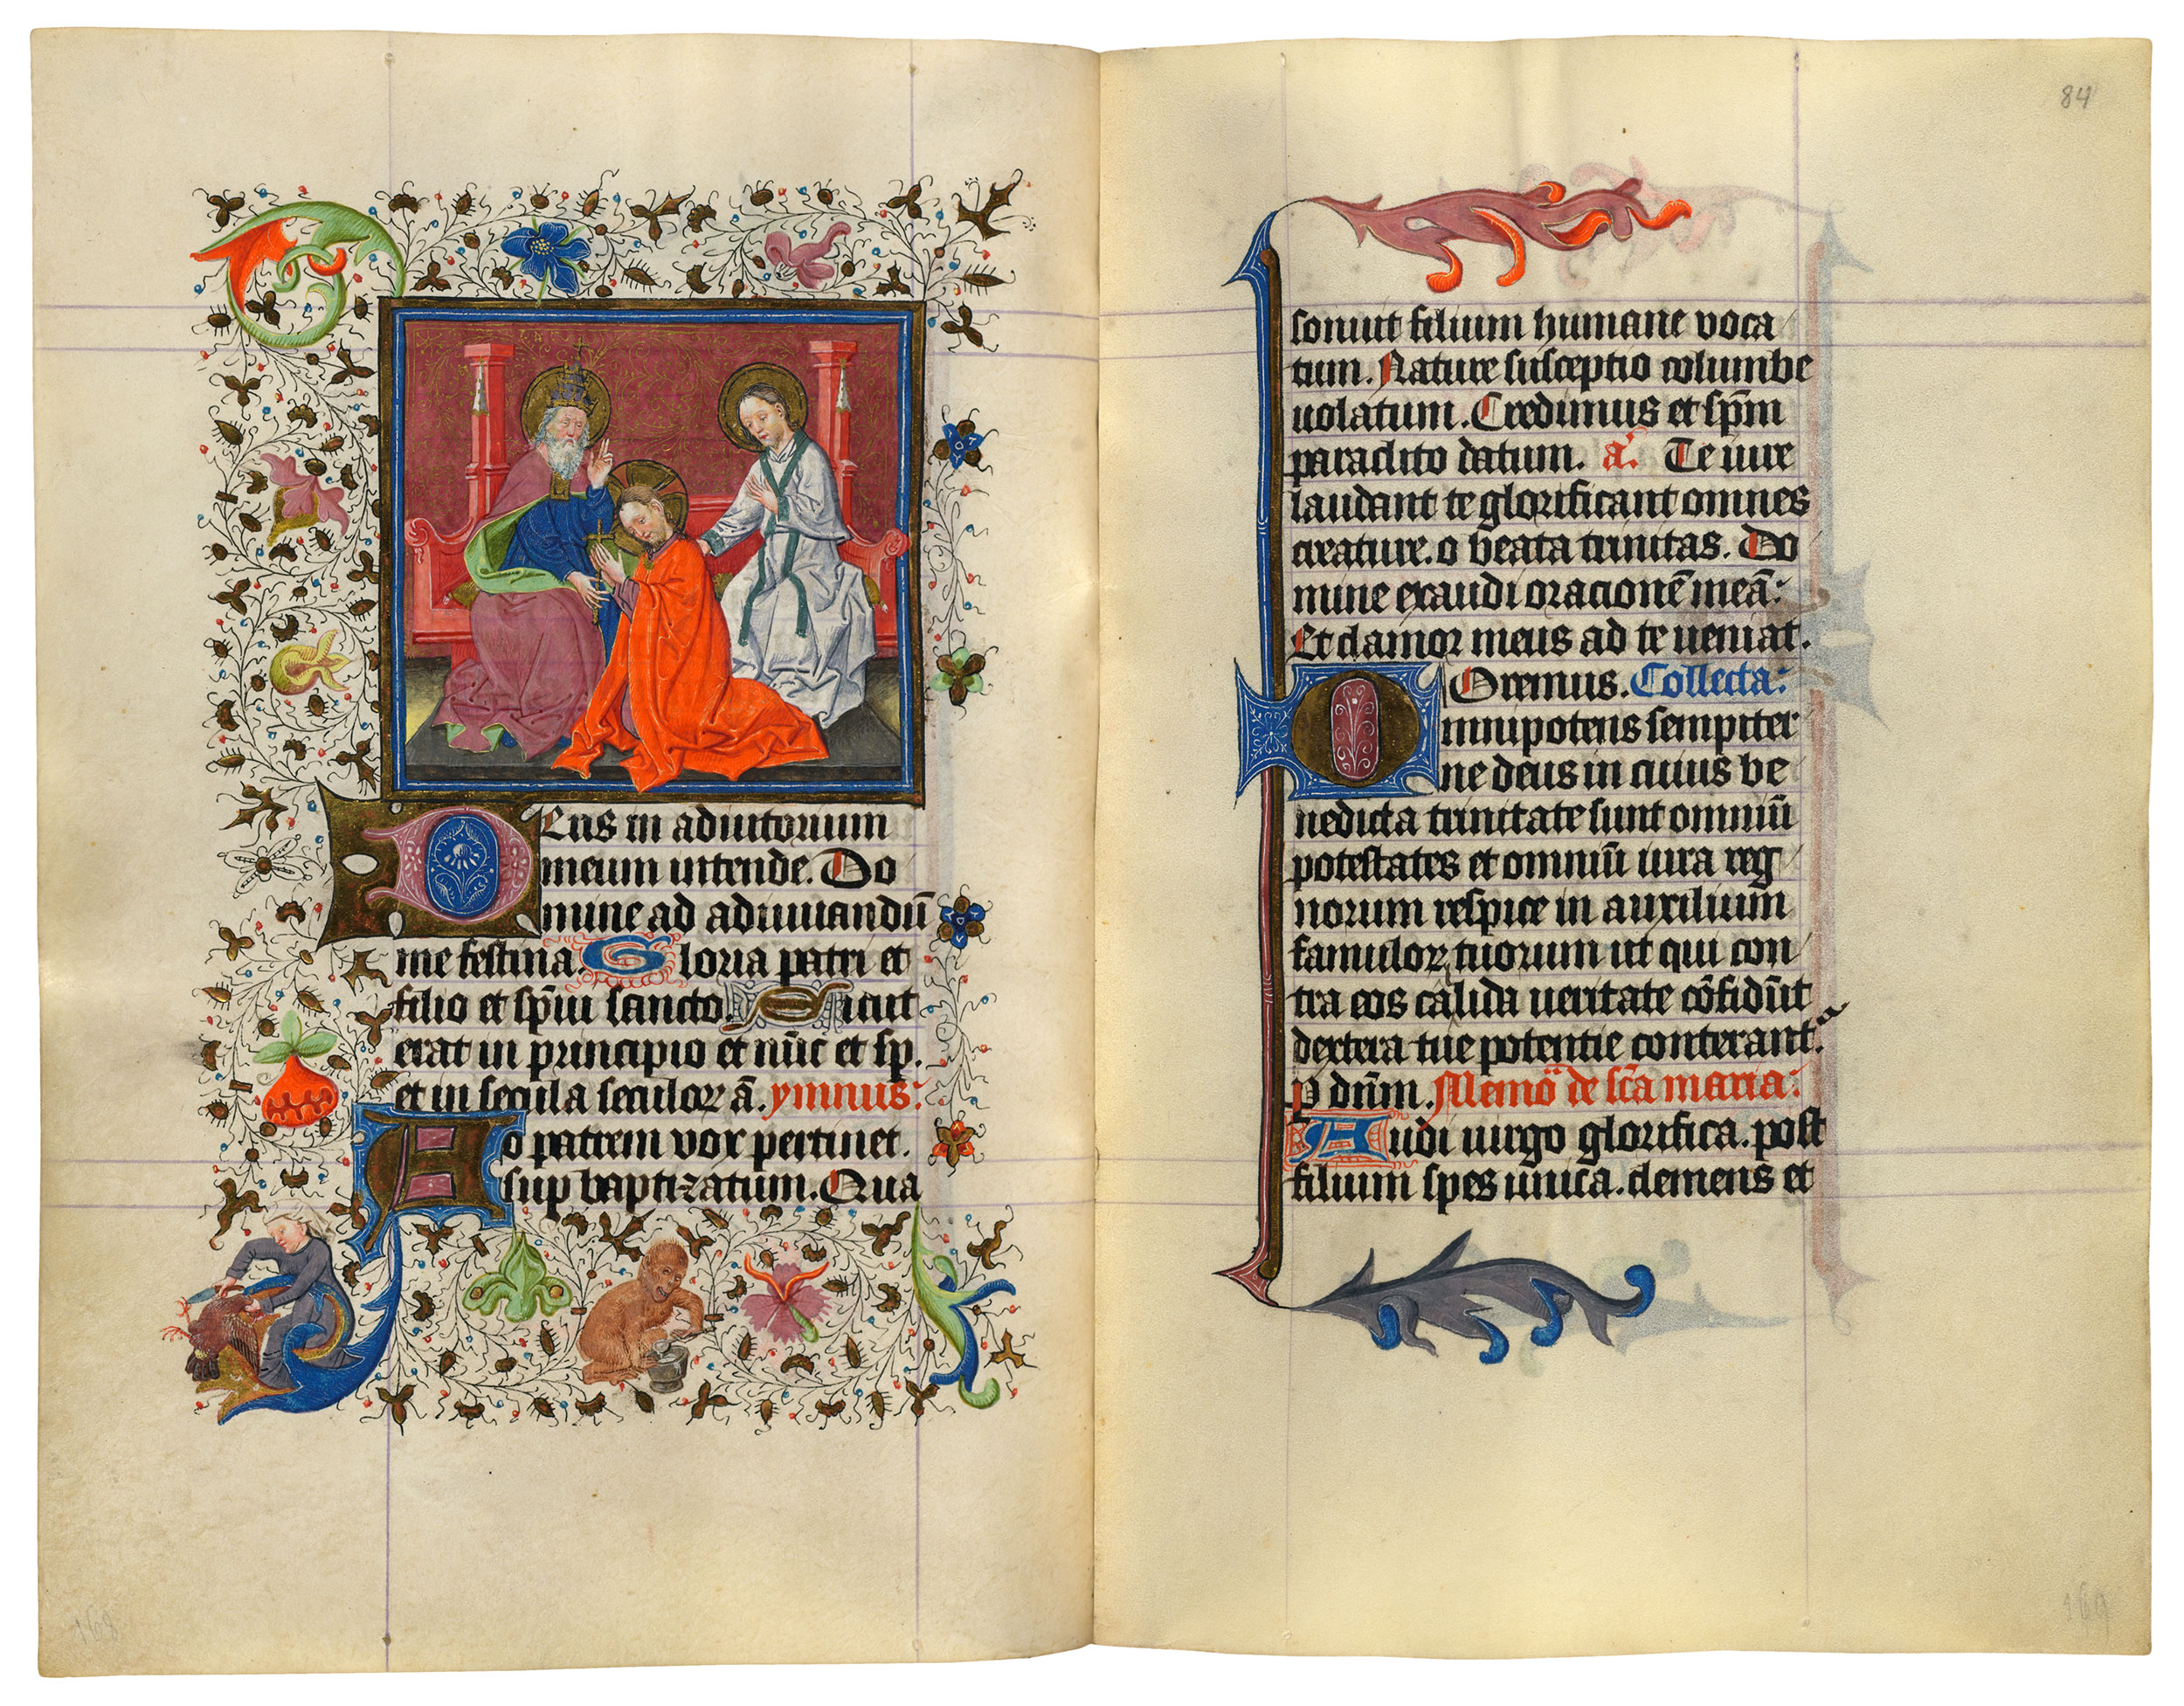 Eus in adiutorium
meum intende. Do
mine ad adiuuandū
me festina. Gloria patri et
filio et sp̄ui sancto. Sicut
erat in principio et nūc et sp.
et in secula seculoꝝ ā. ymnus:
Ad patrem vox pertinet.
sup baptizatum. Qua
84
sonuit filium humane voca
tum. Nature susceptio columbe
uolatum. Credimus et sp̄m
paraclito datum. a. Te iure
laudant te glorificant omnes
creature. o beata trinitas. Do
mine exaudi orationē meā:
Et clamor meus ad te ueniat.
Oremus. Collecta:
Omnipotens sempiter
ne deus in cuius be
nedicta trinitate sunt omniū
potestates et omniū iura reg
norum respice in auxilium
famuloꝝ tuorum ut qui con
tra eos calida ueritate cōfidūt
dextera tue potentie conterant.
p dn̄m. Memo de sc̄a maria:
Audi uirgo glorifica. post
filium spes unica. clemens et
168
169